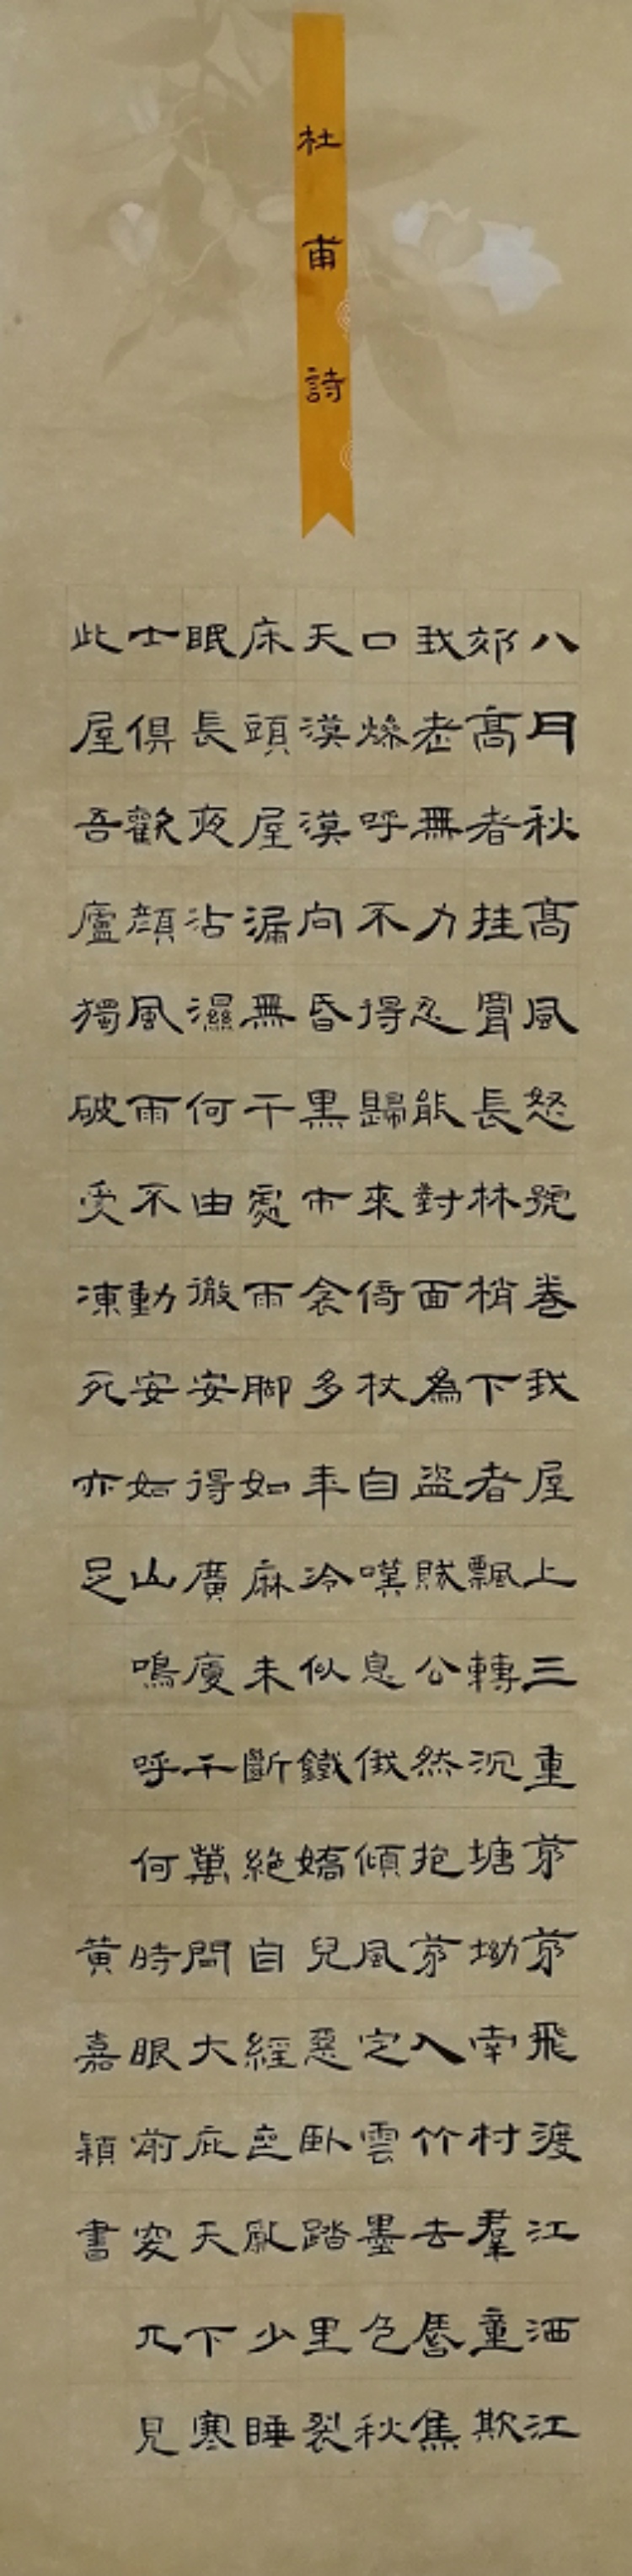 杜甫詩
八月秋髙風怒號卷我屋上三重茅茅飛渡江洒江
郊髙者挂罥長林梢下者飄轉沉塘坳南村羣童欺
我老無力忍能對面為盜賊公然抱茅入竹去唇焦
口燥呼不得歸來倚杖自嘆息俄傾風定雲墨色秋
天漠漠向昏黑布衾多年冷似鐵嬌兒惡臥踏里裂
床頭屋漏無干處雨脚如麻未斷絕自經喪亂少睡
眠長夜沾濕何由徹安得廣廈千萬間大庇天下寒
士俱歡顏風雨不動安如山鳴呼何時眼前突兀見
此屋吾廬獨破受凍死亦足
黃嘉穎書